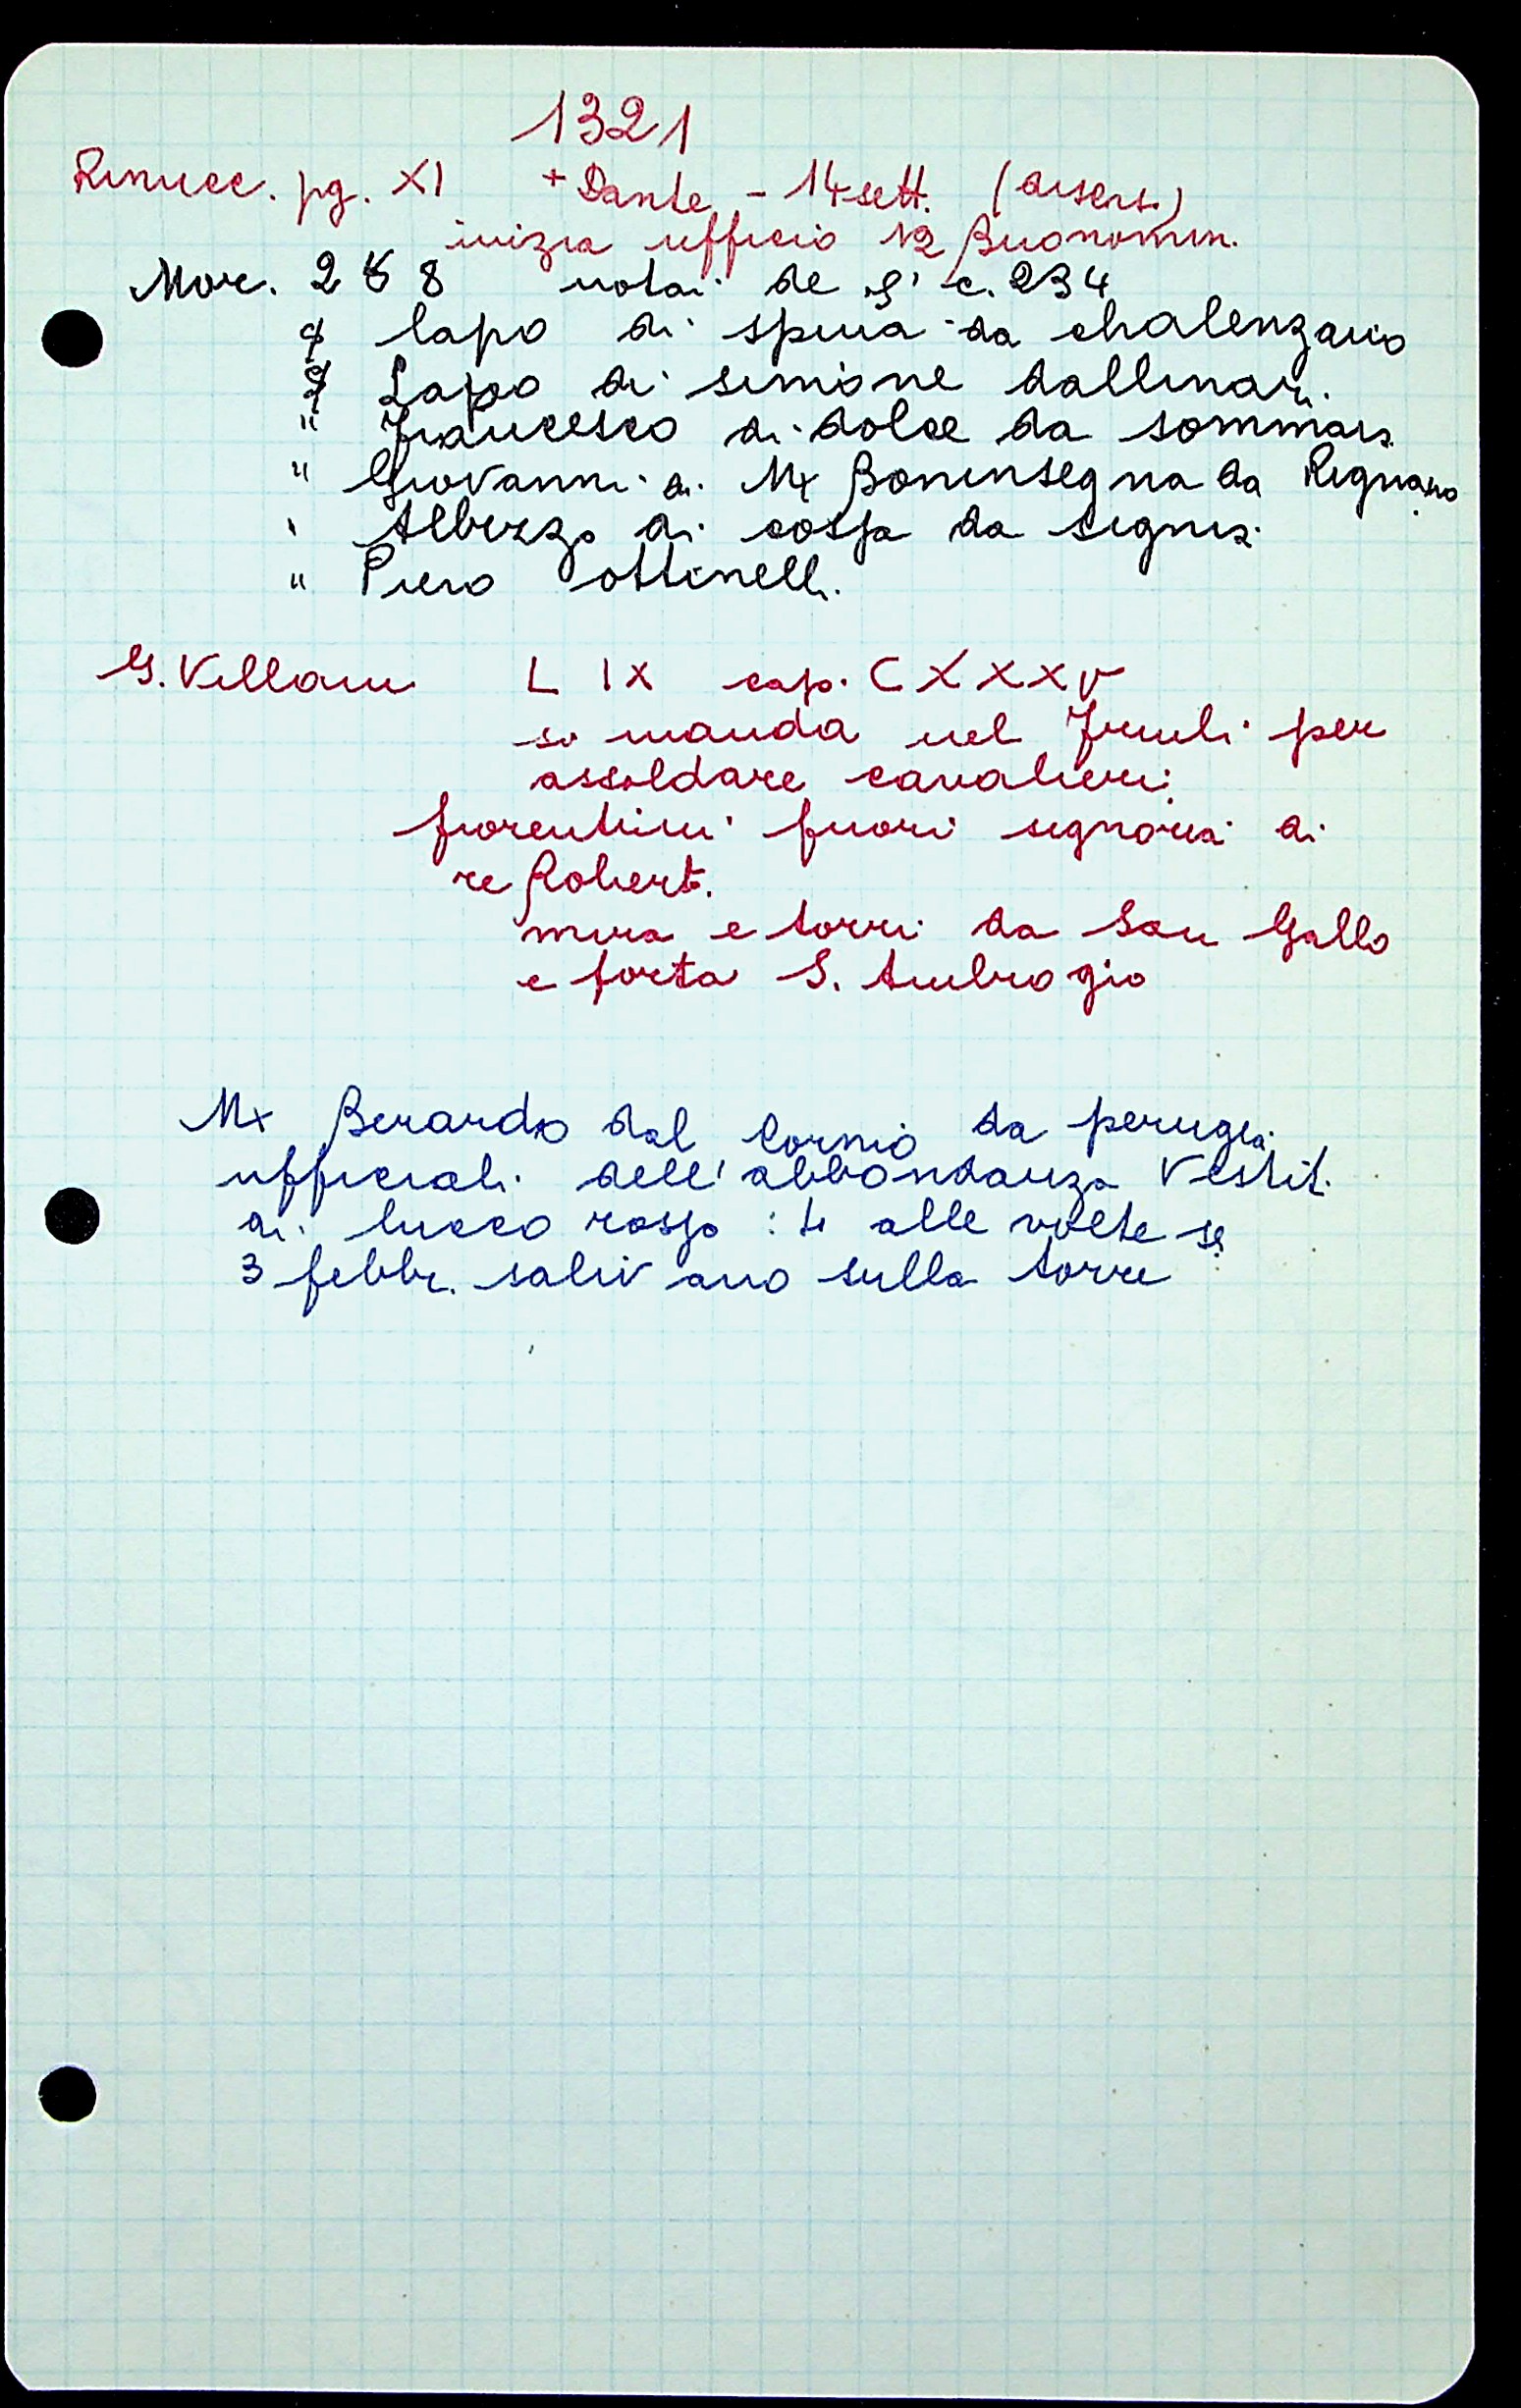 1321
Rinucc. pg. XI + Dante - 14 sett. (disers.)
inizia ufficio 12 Buonomin.
Mor. 2 8 notai de c. 234
lapo di spina da chalenzano
Lapo di simone dallinari.
" Francesco di dolce da sommaia
" Giovanni di Mx Boninsegna da Rignano
" Albizzo di coppa da signa
" Piero ottinelli.
G. Villani L IX cap. CXXXV
si manda nel Friuli per
assoldare cavalieri.
fiorentini fuori signoria di
re Robert.
mura e torri da San Gallo
e porta S. Ambrogio
Mx Berardo dal Cornio da perugia
ufficiali dell'abbondanza Vestit.
di lucco rosso : 4 alle volte se
3 febbr. salivano sulla torre